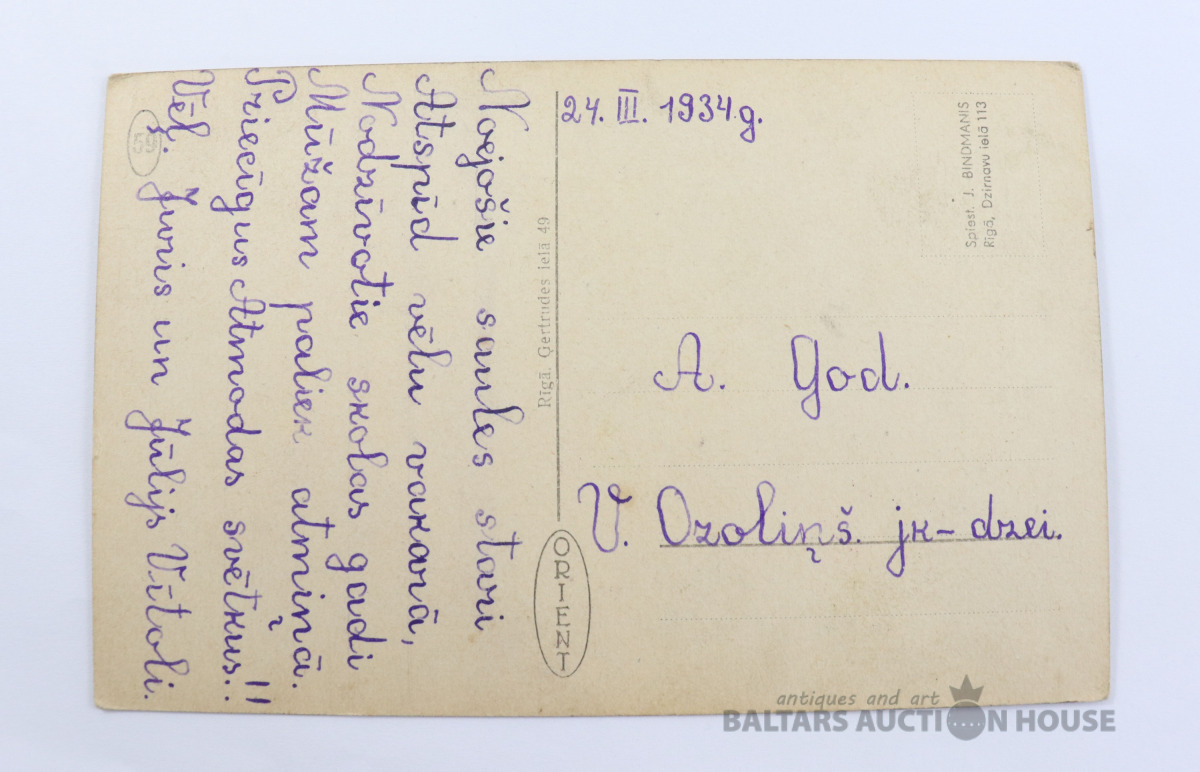 Noejošie saules stari
Atspīd vēlu vakarā,
Nodzīvotie skolas gadi
Mūžam paliek atmiņā.
Priecīgus Atmodas svētkus..!!
Vēl. Juris un Jūlijs Vītoli.
59
Rīgā, Ģertrudes ielā 49
ORIENT
24. III. 1934.g.
A. God.
V. Ozoliņš. jk-dzei.
Spiest. J. BINDMANIS
Rīgā, Dzirnavu ielā 113
antiques and art
BALTARS AUCTION HOUSE